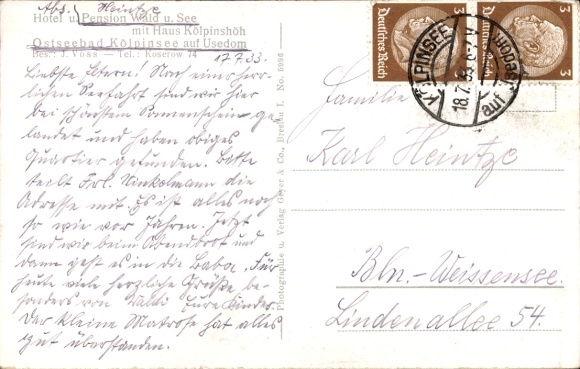 Abs. Heintze
Hotel u. Pension Wald u. See
mit Haus Kölpinshöh
Ostseebad Kölpinsee auf Usedom
Bes.: J. Voss — Tel.: Koserow 74
17.7.33.
Liebste Eltern! Nach einer herr-
lichen Seefahrt sind wir hier
bei schönstem Sonnenschein ge-
landet und haben obiges
Quartier gefunden. Bitte
teilt Frl. Winkelmann die
Adresse mit. Es ist alles noch
so wie vor Jahren. Jetzt
sind wir beim Abendbrot und
dann geht es in die Baba. Für
heute viele herzliche Grüße be-
sonders von Eure Kinder.
Der kleine Matrose hat alles
gut überstanden.
Photographie u. Verlag Geyer & Co., Breslau I. No. 1096
Deutsches Reich 3
Deutsches Reich 3
KÖLPINSEE
18.7.33
auf USEDOM
Familie
Karl Heintze
Bln.-Weissensee.
Lindenallee 54.